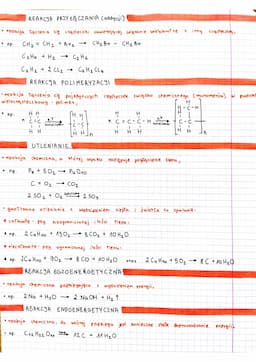 REAKCJA PRZYŁĄCZANIA (addycji)
• reakcja łączenia się cząsteczki zawierającej wiązanie wielokrotne z inną cząsteczką
• np. CH₂ = CH₂ + Br₂ → CH₂Br – CH₂Br
C₂H₂ + H₂ → C₂H₄
C₂H₂ + 2Cl₂ → C₂H₂Cl₄
REAKCJA POLIMERYZACJI
• reakcja łączenia się pojedynczych cząsteczek związku chemicznego (monomerów) w
wielocząsteczkowy - polimer,
• np.
UTLENIANIE
• reakcja chemiczna, w której wyniku następuje połączenie tlenu,
• np. P₄ + 5O₂ → P₄O₁₀
C + O₂ → CO₂
2SO₂ + O₂ 2SO₃
- gwałtowne utlenianie z wydzieleniem ciepła i światła to spalanie:
• całkowite - przy nieograniczonej ilości tlenu:
• np. 2C₄H₁₀ + 13O₂ → 8CO₂ + 10H₂O
• niecałkowite - przy ograniczonej ilości tlenu:
• np. 2C₄H₁₀ + 9O₂ → 8CO + 10H₂O oraz 2C₄H₁₀ + 5O₂ → 8C + 10H₂O
REAKCJA EGZOENERGETYCZNA
• reakcja chemiczna przebiegająca z wydzieleniem energii,
• np. 2Na + H₂O → 2NaOH + H₂↑
REAKCJA ENDOENERGETYCZNA
• reakcja chemiczna, do której energię jest konieczne stałe doprowadzenie energii,
• np. C₁₂H₂₂O₁₁ → 12C + 11H₂O